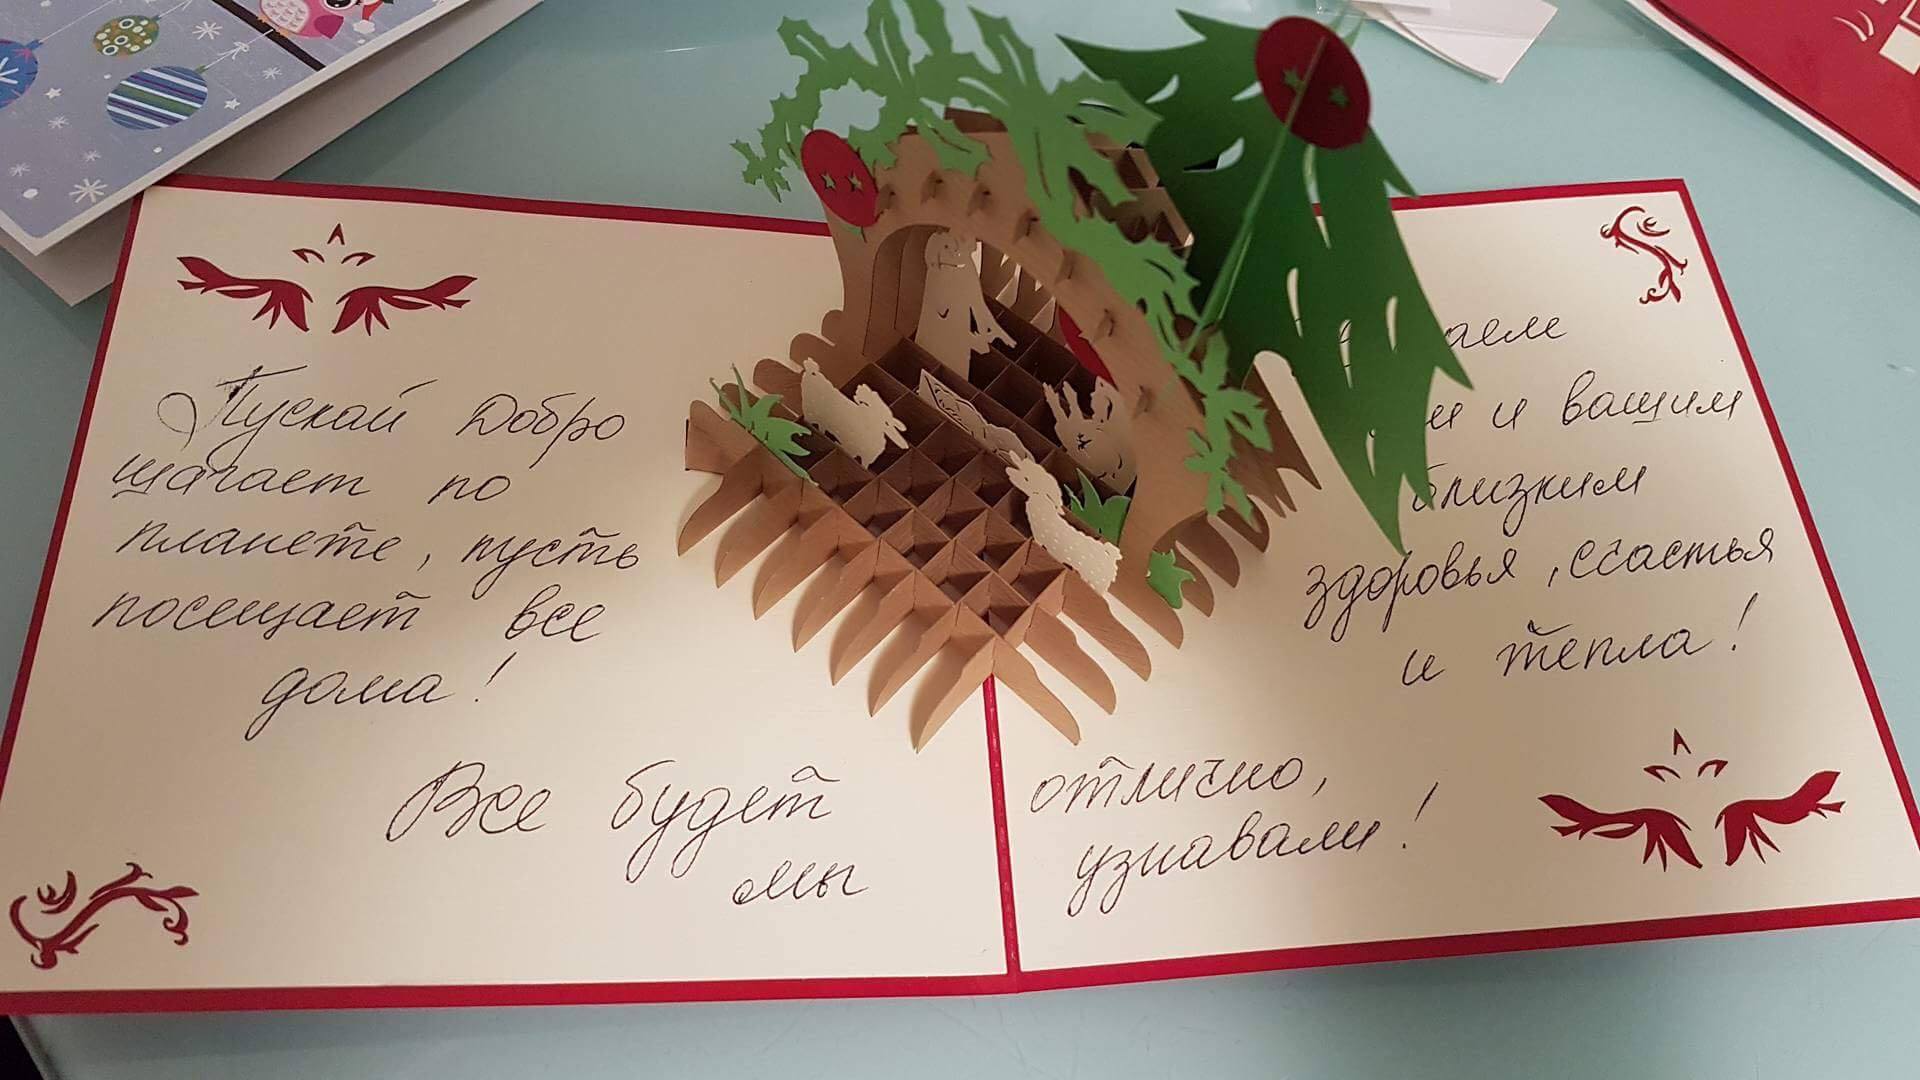 Пускай Добро
шагает по
планете, пусть
посещает все
дома!
близким
здоровья, счастья
и тепла!
и вашим
Все будет отлично,
мы узнавали!